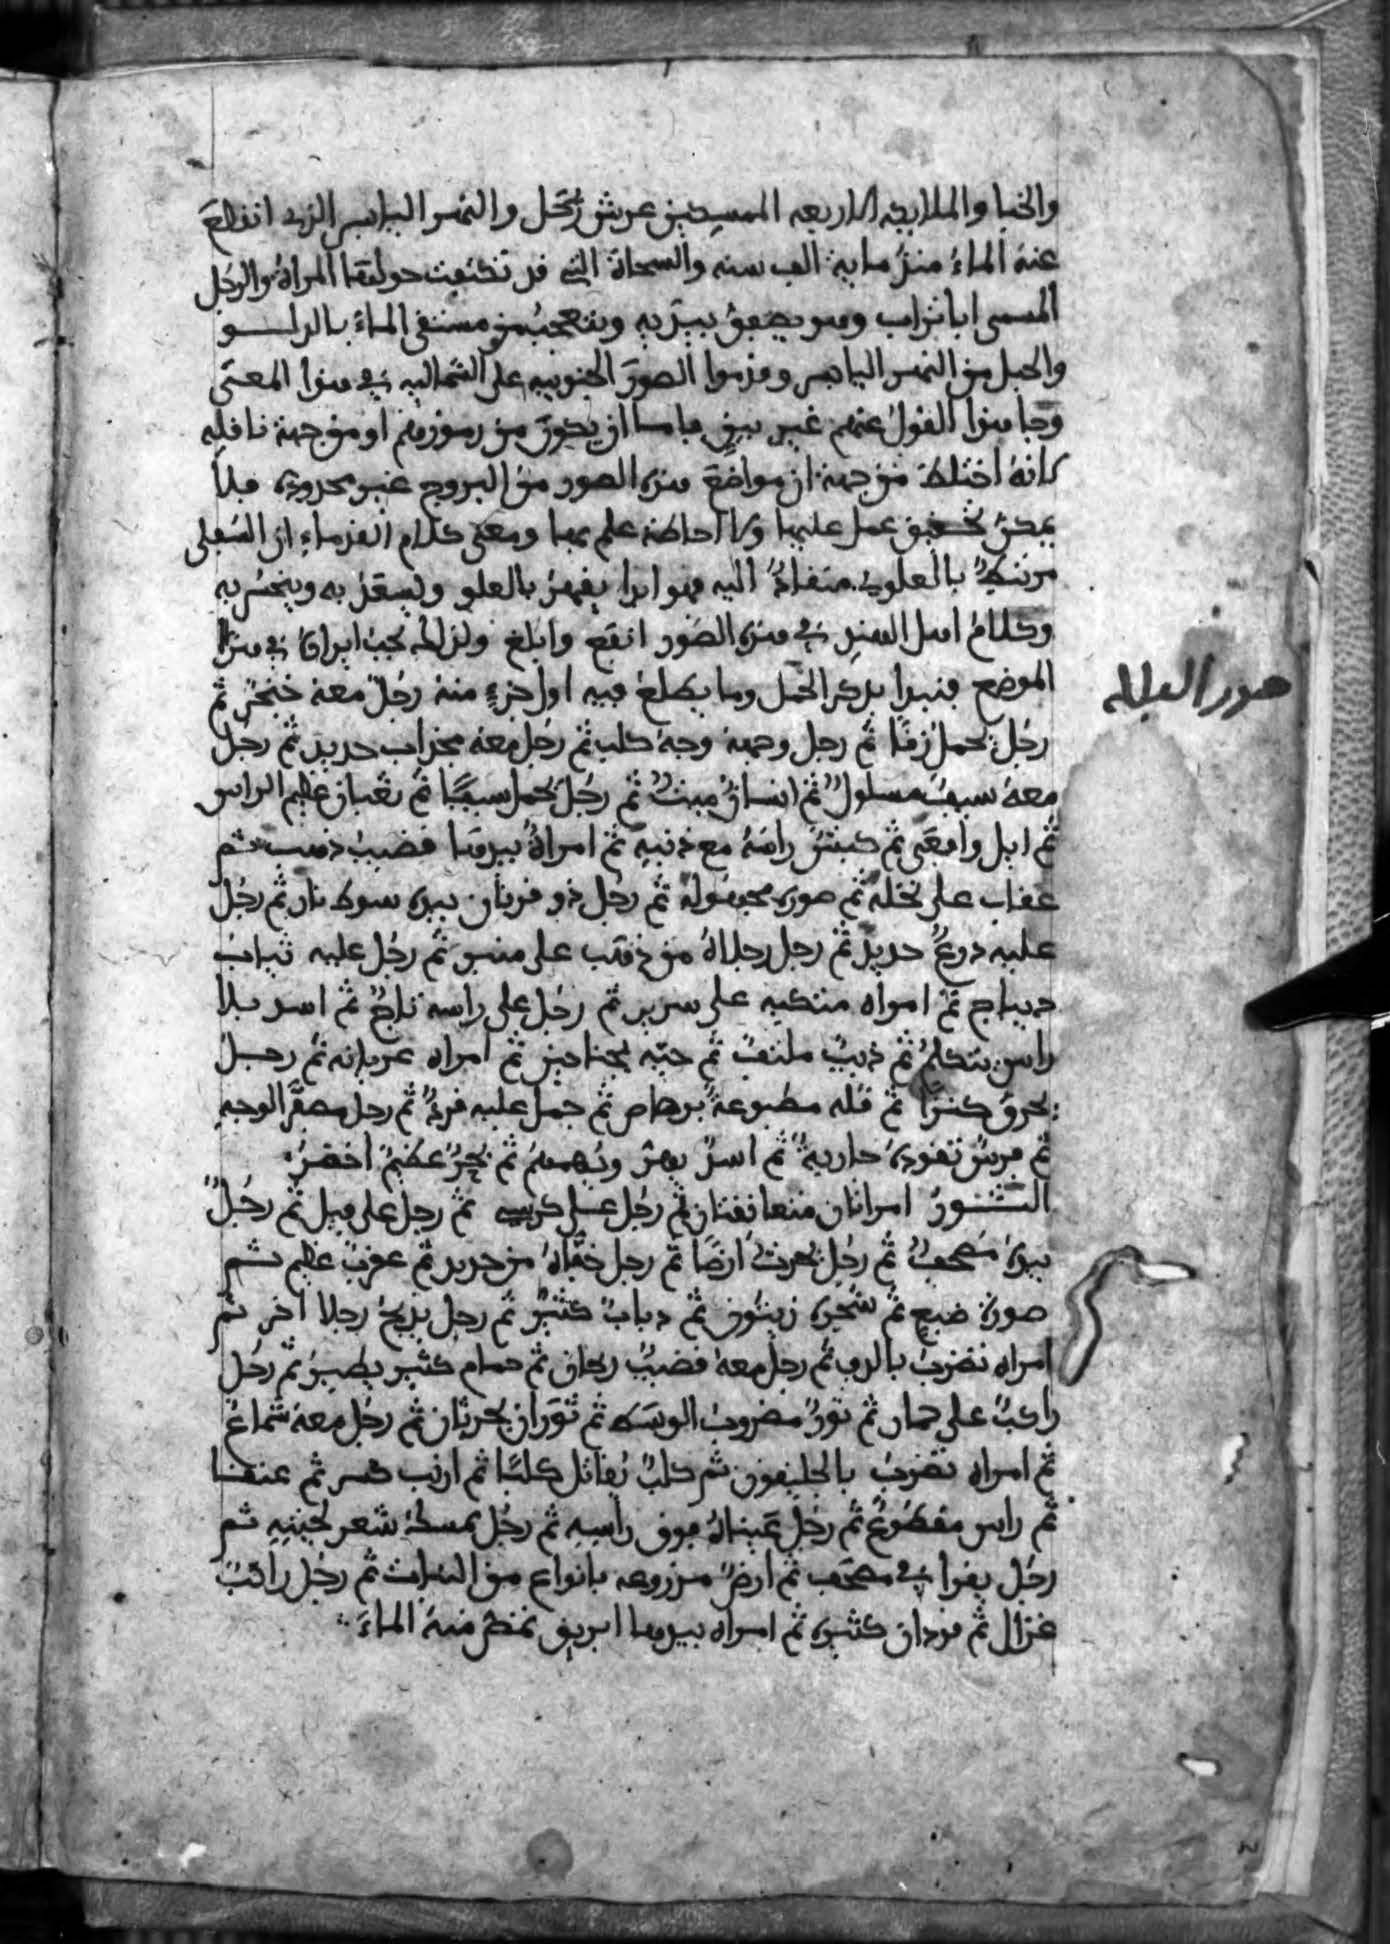 والخبا والملايكه الاربعه الممسكين عريش زحل والنهر اليابس الذى انقطع
عنه الماء منذ ماية الف سنه والسحاة التى قد تكنفت حولهما المراة والرجل
المسمى ابا تراب وهو يصفق بيديه ويتعجب من مستقى الماء بالدلـــو
والحبل من النهر اليابس وقدموا الصور الجنوبيه على الشماليه فى هذا المعنى
وجا هذا القول عنهم غير بين فاما ان يكون من رموزهم او من جهة ناقله
كانه اختلط من جهة ان مواضع هذه الصور من البروج غير محدوده فلا
يمكن تحقيق عمل عليها ولا احاطة علم بها ومعنى كلام القدماء ان السفلى
مرتبط بالعلوى منقاد اليه فهو ابدا يقهر بالعلو ويسعد به وينحس به
وكلام اهل الهند فى هذه الصور انفع وابلغ ولذلك يجب ايراده فى هذا
الموضع فنبدا بذكر الحمل وما يطلع فيه اول جزء منه رجل معه خنجر ثم
رجل يحمل زقا ثم رجل وجهه وجه كلب ثم رجل معه محراب حديد ثم رجل
معه سيف مسلول ثم انسان ميت ثم رجل يحمل سيفا ثم ثعبان عظيم الراس
ثم ابل وافعى ثم كبش راسه مع ذنبه ثم امراة بيدها قضيب ذهب ثم
عقاب على نخلة ثم صوره مجهوله ثم رجل ذو قرنان بيده سوط نار ثم رجل
عليه درع حديد ثم رجل رجلاه من ذهب على منبر ثم رجل عليه ثياب
ديباج ثم امراه متكيه على سرير ثم رجل على راسه تاج ثم اسد بلا
راس يتكلم ثم ذيب ملتف ثم حيه بجناحين ثم امراه عريانه ثم رجل
يحرق كنزا ثم قله مطبوعة برصاص ثم جمل عليه قرد ثم رجل مصفر الوجه
ثم فرس تقوده جارية ثم اسد يهر ويهمهم ثم بحر عظيم اخضر
الثـــور امراتان متعانقتان ثم رجل على كرسى ثم رجل على فيل ثم رجل
بيده مصحف ثم رجل يحرث ارضا ثم رجل خفاه من حديد ثم عقرب عظيم ثم
صورة ضبع ثم شجره زيتون ثم دباب كثير ثم رجل يذبح رجلا اخر ثم
امراه تضرب بالدف ثم رجل معه قضيب ريحان ثم حمام كثير يطير ثم رجل
راكب على حمار ثم ثور مضروب الوسط ثم ثوران يحرثان ثم رجل معه شماع
ثم امراه تضرب بالجليفون ثم كلب يقاتل كلبا ثم ارنب كسر ثم عنقا
ثم راس مقطوع ثم رجل عيناه فوق راسه ثم رجل يمسك شعر لحيته ثم
رجل يقرا فى مصحف ثم ارض مزروعه بانواع من النبات ثم رجل راكب
غزال ثم قردان كثيره ثم امراه بيدها ابريق تمطر منه الماء